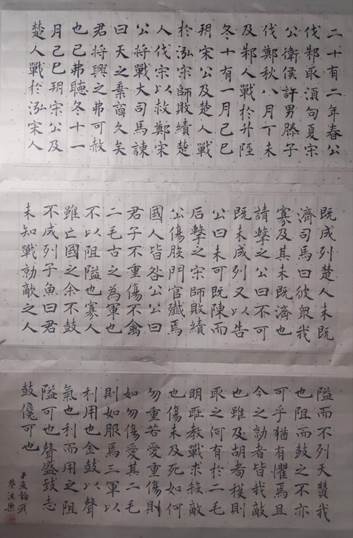 二十有二年春公
伐邾取須句夏宋
公衛侯許男滕子
伐鄭秋八月丁未
及邾人戰於升陘
冬十有一月己巳
朔宋公及楚人戰
於泓宋師敗績楚
人伐宋以救鄭宋
公將戰大司馬諫
曰天之棄商久矣
君將興之弗可赦
也已弗聽冬十一
月己巳朔宋公及
楚人戰於泓宋人
既成列楚人未既
濟司馬曰彼眾我
寡及其未既濟也
請擊之公曰不可
既未成列又以告
公曰未可既陳而
后擊之宋師敗績
公傷股門官殲焉
國人皆咎公公曰
君子不重傷不禽
二毛古之為軍也
不以阻隘也寡人
雖亡國之余不鼓
不成列子魚曰君
未知戰勍敵之人
隘而不列天贊我
也阻而鼓之不亦
可乎猶有懼焉且
今之勍者皆我敵
也雖及胡耇獲則
取之何有於二毛
明恥教戰求殺敵
也傷未及死如何
勿重若愛重傷則
如勿傷愛其二毛
則如服焉三軍以
利用也金鼓以聲
氣也利而用之阻
隘可也聲盛致志
鼓儳可也